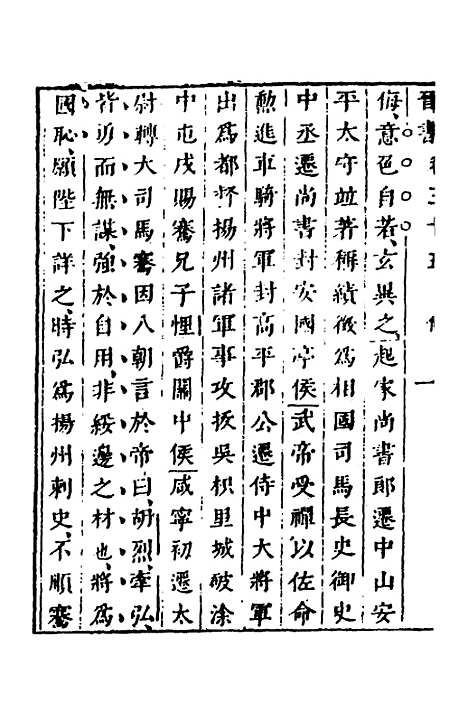 晉書卷三十五 一
侮意色自若玄異之起家尚書郎遷中山安
平太守並著稱績徵為相國司馬長史御史
中丞遷尚書封安國亭侯武帝受禪以佐命
勲進車騎將軍封高平郡公遷侍中大將軍
出為都督揚州諸軍事攻拔吳枳里城破涂
中屯戍賜騫兄子悝爵關中侯咸寧初遷太
尉轉大司馬騫因入朝言於帝曰胡烈牽弘
皆勇而無謀強於自用非綏邊之材也將為
國恥願陛下詳之時弘為揚州刺史不順騫